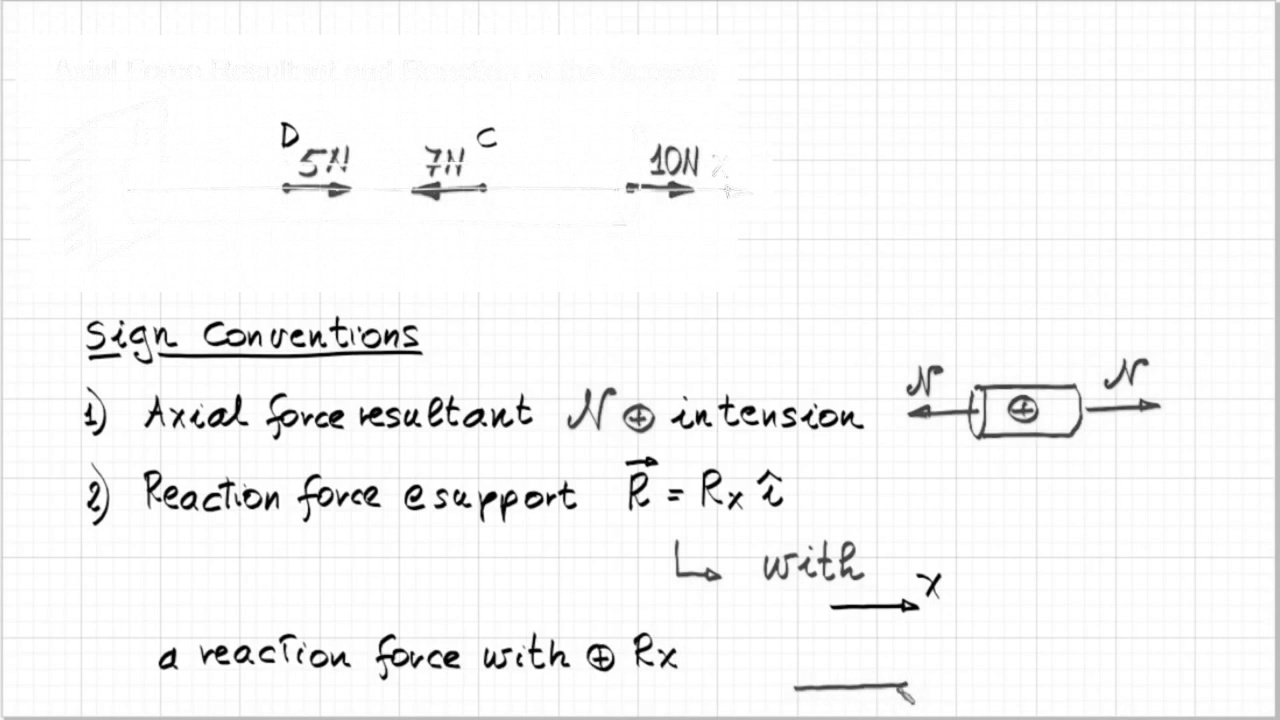 Axial Force Resultant and Reaction at the Support
D C
5N 7N 10N x
Sign Conventions
1) Axial force resultant N ⊕ in tension N ⊕ N
2) Reaction force @ support R⃗ = Rx î
with x
a reaction force with ⊕ Rx